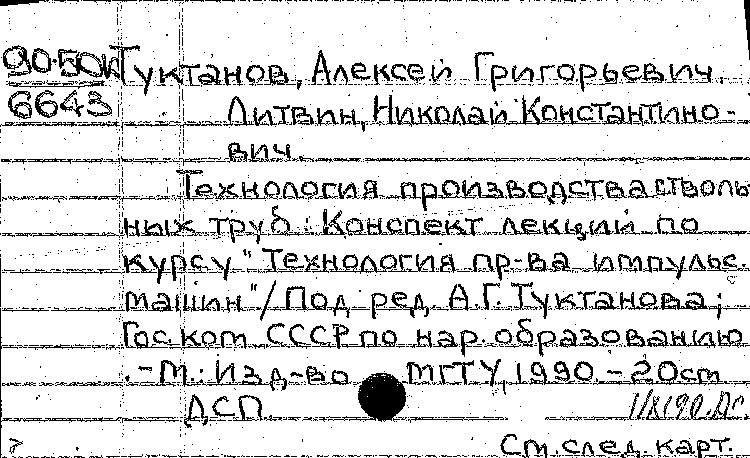 90-50К Туктанов, Алексей Григорьевич.
6643 Литвин, Николай Константино-
вич.
Технология производства стволь
ных труб : Конспект лекций по
курсу "Технология пр-ва импульс.
машин" / Под ред. А.Г. Туктанова ;
Гос. ком. СССР по нар. образованию
. - М. : Изд-во МГТУ, 1990. - 20см
ДСП.
См. след. карт.